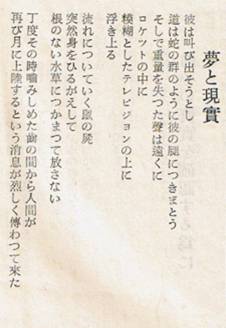 夢と現實
彼は叫び出そうとし
道は蛇の群のように彼の腿につきまとう
そして重量を失つた聲は遠くに
ロケツトの中に
模糊としたテレビジヨンの上に
浮き上る
流れについていく鼠の屍
突然身をひるがえして
根のない水草につかまつて放さない
丁度その時噛みしめた齒の間から人間が
再び月に上陸するという消息が烈しく傳わつて來た